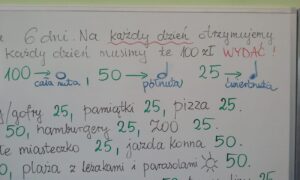 6 dni. Na każdy dzień otrzymujemy
każdy dzień musimy te 100 zł WYDAĆ!
100 → , 50 → 25 →
cała nuta półnuta ćwierćnuta
/gofry 25, pamiątki 25, pizza 25.
50, hamburgery 25, ZOO 25.
miasteczko 25, jazda konna 50.
0, plaża z leżakami i parasolami 50.